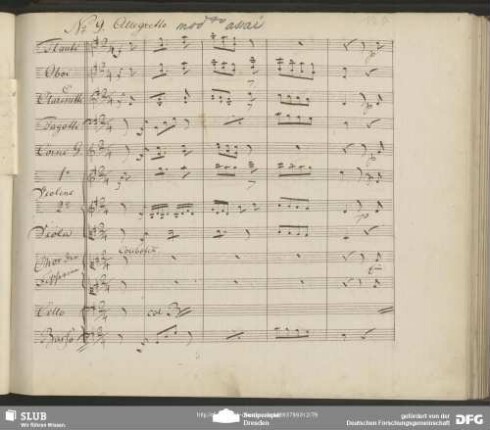 No 9. Allegretto mod^to assai
Flauti
Oboi
Clarinetti C
Fagotti
Corni G.
1º
Violino
2º
Viola
Chor
Soprani
Cello col B
Basso
SLUB
Wir führen Wissen.
Dresden
gefördert von der
Deutschen Forschungsgemeinschaft
DFG